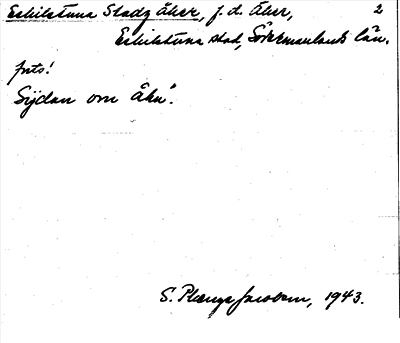 Eskilstuna Stadz åker, f. d. Åker, 2
Eskilstuna stad, Södermanlands län.
forts!
Sijdan om åhn".
S. Plænge Jacobson, 1943.